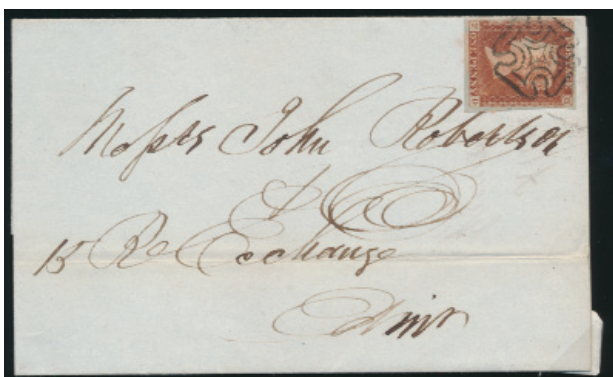 Messrs John Robertson
& Co
15 Rl Exchange
Edinr